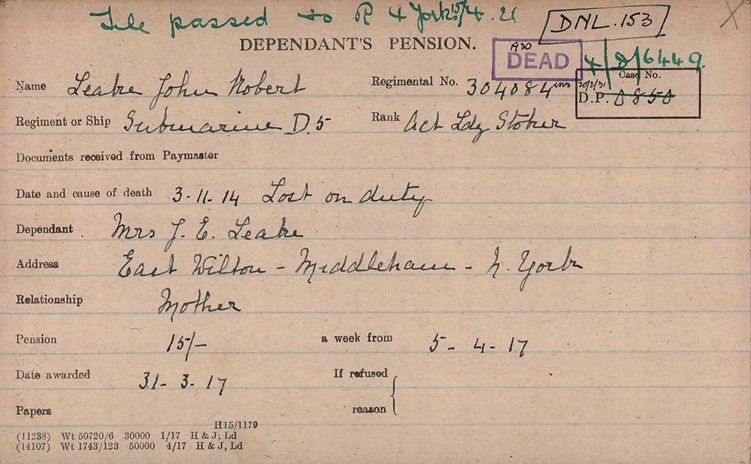 File passed to R 4 York 15/4.21
DNL.153
DEPENDANT'S PENSION.
DEAD
4/8/6449
Case No.
Name Leake John Robert
Regimental No. 304084
D.P. 0850
Regiment or Ship Submarine D.5
Rank Act Ldg Stoker
Documents received from Paymaster
Date and cause of death 3-11-14 Lost on duty
Dependant Mrs J. E. Leake
Address East Wilton - Middleham - N. Yorks
Relationship Mother
Pension 15/- a week from 5-4-17
Date awarded 31-3-17 If refused
Papers reason
H15/1179
(11238) Wt 50720/6 30000 1/17 H & J, Ld
(14107) Wt 1743/123 50000 4/17 H & J, Ld